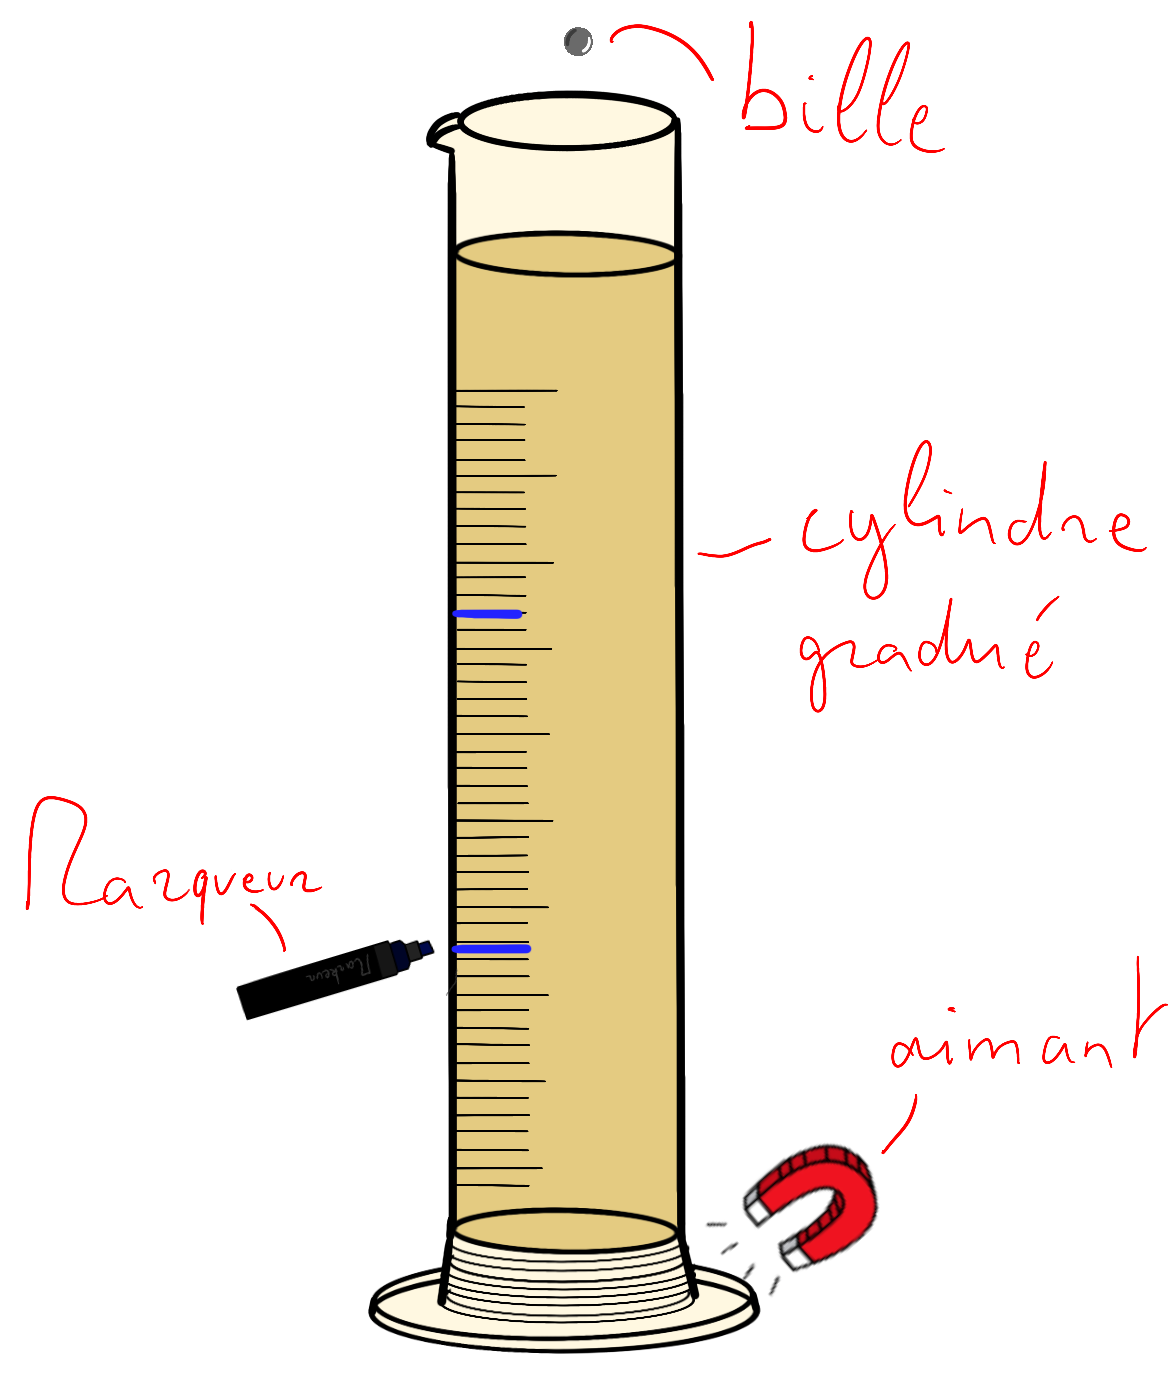 bille
cylindre
gradué
Marqueur
Markeur
aimant